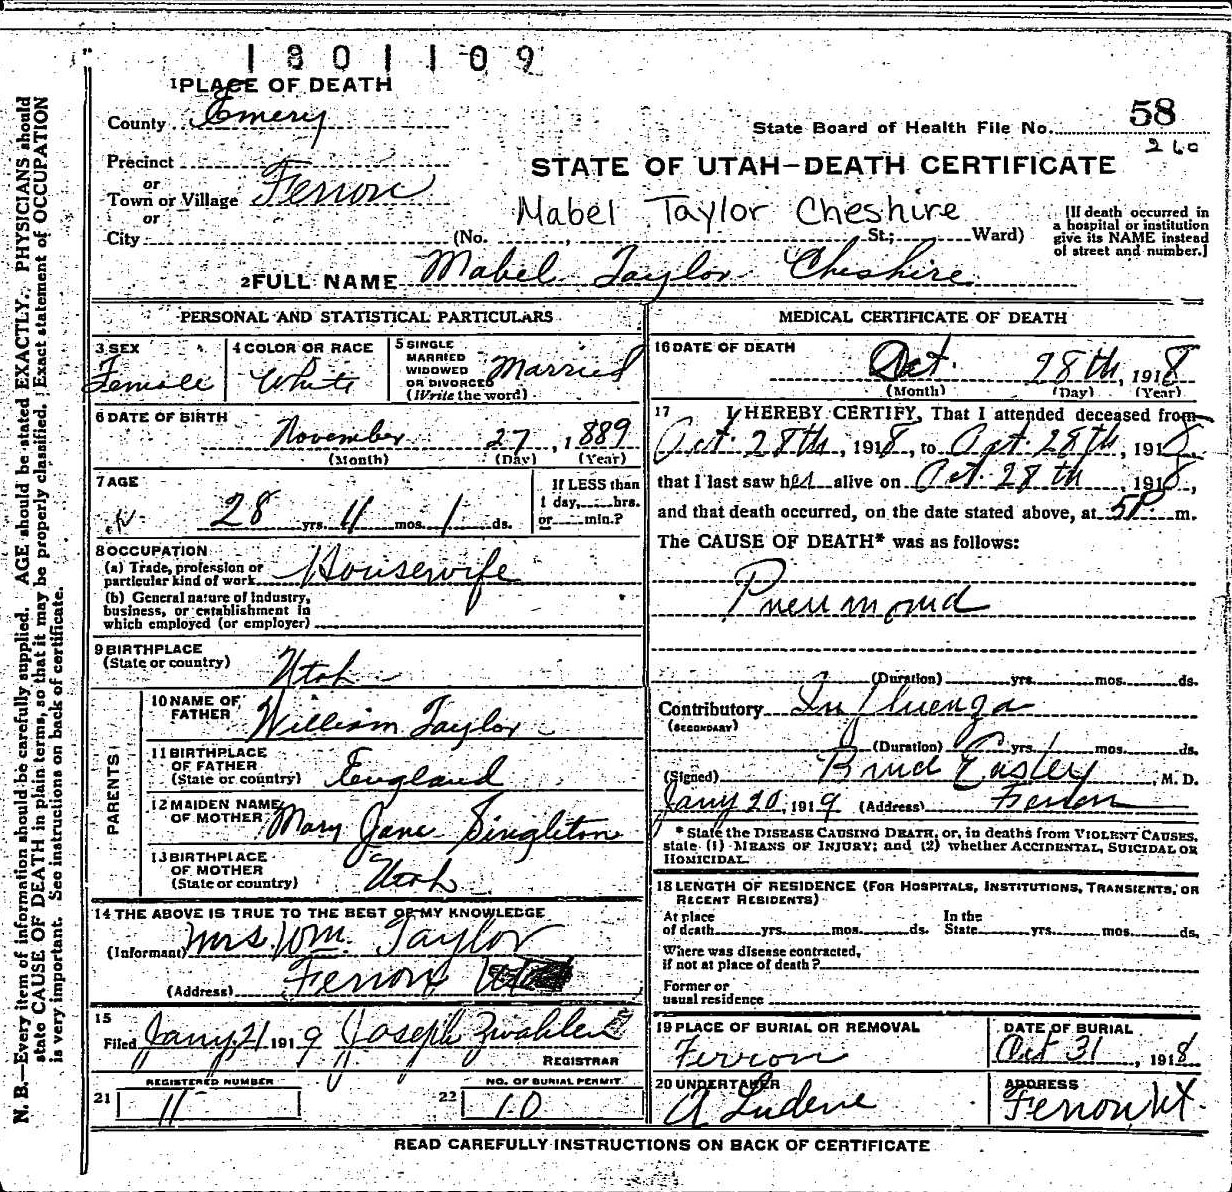 1801109
1 PLACE OF DEATH
County Emery
State Board of Health File No. 58
260
Precinct
or
Town or Village Ferron
or
City
STATE OF UTAH—DEATH CERTIFICATE
Mabel Taylor Cheshire
(No. , St.; Ward)
[If death occurred in
a hospital or institution
give its NAME instead
of street and number.]
2 FULL NAME Mabel Taylor Cheshire
PERSONAL AND STATISTICAL PARTICULARS
3 SEX
Female
4 COLOR OR RACE
White
5 SINGLE
MARRIED
WIDOWED
OR DIVORCED
(Write the word)
Married
6 DATE OF BIRTH
November 27, 1889
(Month) (Day) (Year)
7 AGE
28 yrs. 11 mos. 1 ds.
If LESS than
1 day, hrs.
or min.?
8 OCCUPATION
(a) Trade, profession or
particular kind of work Housewife
(b) General nature of industry,
business, or establishment in
which employed (or employer)
9 BIRTHPLACE
(State or country) Utah
PARENTS
10 NAME OF
FATHER William Taylor
11 BIRTHPLACE
OF FATHER
(State or country) England
12 MAIDEN NAME
OF MOTHER Mary Jane Singleton
13 BIRTHPLACE
OF MOTHER
(State or country) Utah
14 THE ABOVE IS TRUE TO THE BEST OF MY KNOWLEDGE
(Informant) Mrs. Wm. Taylor
(Address) Ferron
15
Filed Jany 21 1919 Joseph Zwahlen
REGISTRAR
REGISTERED NUMBER
21 11
NO. OF BURIAL PERMIT
22 10
MEDICAL CERTIFICATE OF DEATH
16 DATE OF DEATH
Oct. 28th, 1918
(Month) (Day) (Year)
17 I HEREBY CERTIFY, That I attended deceased from
Oct. 28th, 1918, to Oct. 28th, 1918,
that I last saw her alive on Oct. 28th, 1918,
and that death occurred, on the date stated above, at 5P m.
The CAUSE OF DEATH* was as follows:
Pneumonia
(Duration) yrs. mos. ds.
Contributory Influenza
(SECONDARY)
(Duration) yrs. mos. ds.
(Signed) Easley, M. D.
Jany 20, 1919 (Address) Ferron
* State the DISEASE CAUSING DEATH, or, in deaths from VIOLENT CAUSES,
state (1) MEANS OF INJURY; and (2) whether ACCIDENTAL, SUICIDAL OR
HOMICIDAL.
18 LENGTH OF RESIDENCE (FOR HOSPITALS, INSTITUTIONS, TRANSIENTS, OR
RECENT RESIDENTS)
At place In the
of death yrs. mos. ds. State yrs. mos. ds.
Where was disease contracted,
if not at place of death?
Former or
usual residence
19 PLACE OF BURIAL OR REMOVAL
Ferron
DATE OF BURIAL
Oct 31, 1918
20 UNDERTAKER
ADDRESS
Ferron, Ut.
READ CAREFULLY INSTRUCTIONS ON BACK OF CERTIFICATE
N. B.—Every item of information should be carefully supplied. AGE should be stated EXACTLY. PHYSICIANS should
state CAUSE OF DEATH in plain terms, so that it may be properly classified. Exact statement of OCCUPATION
is very important. See instructions on back of certificate.